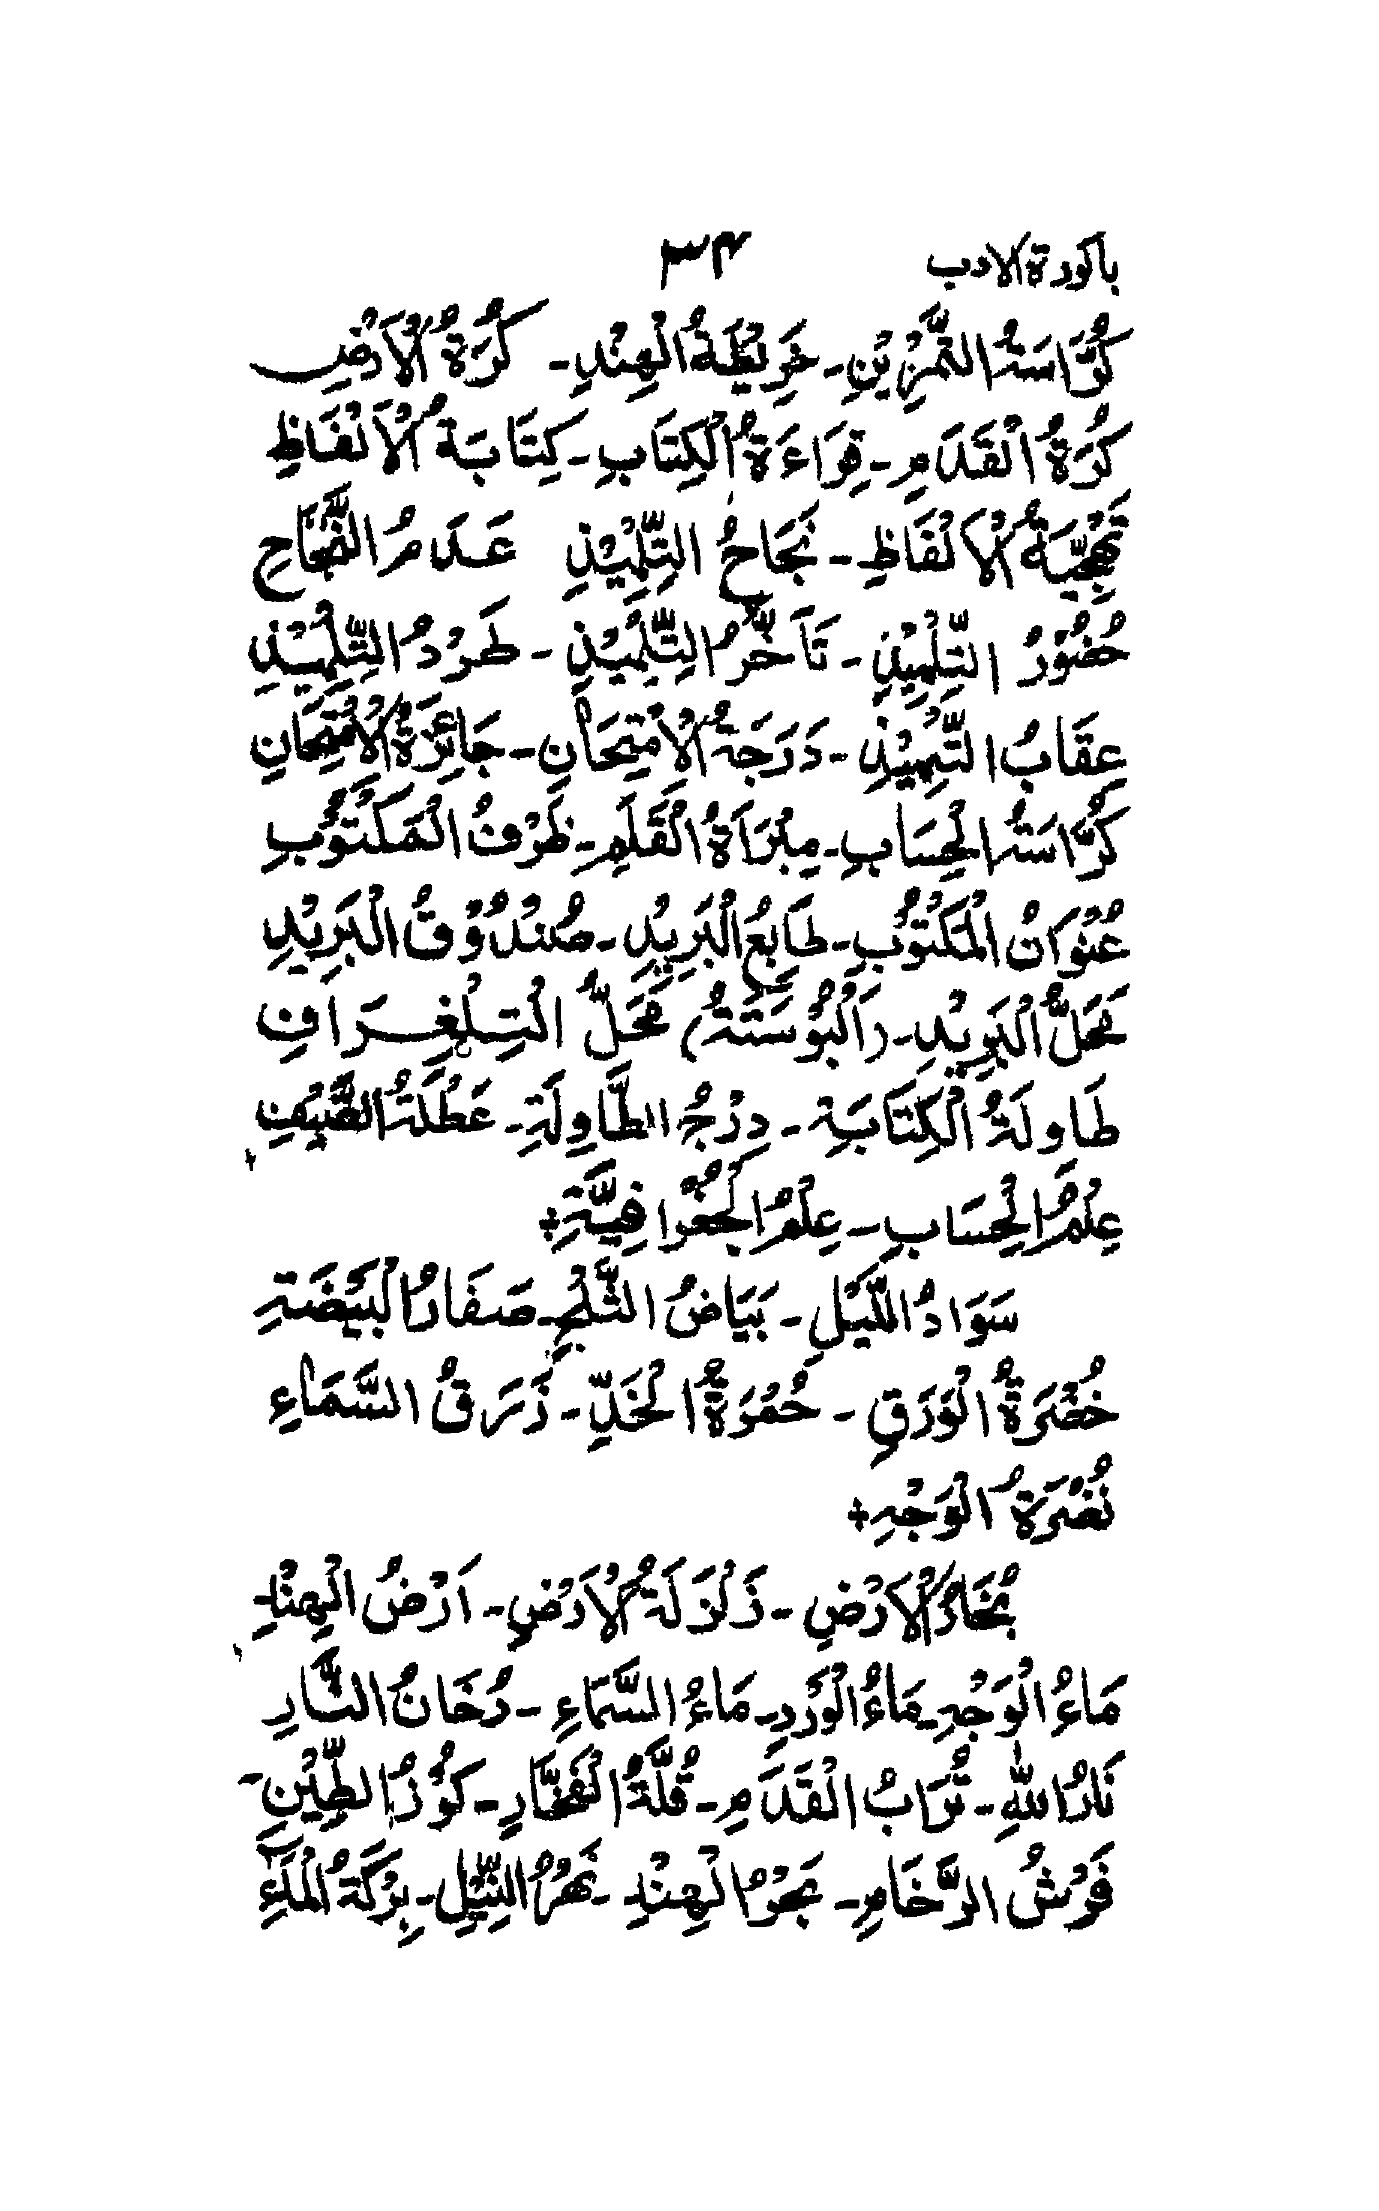 باكورة الادب ٣٤
كُرَّاسَةُ التَّمْرِيْنِ - خَرِيْطَةُ الْهِنْدِ - كُرَةُ الْاَرْضِ
كُرَةُ الْقَدَمِ - قِرَاءَةُ الْكِتَابِ - كِتَابَةُ الْاَلْفَاظِ
تَهْجِيَةُ الْاَلْفَاظِ - نَجَاحُ التِّلْمِيْذِ عَدَمُ النَّجَاحِ
حُضُوْرُ التِّلْمِيْذِ - تَاَخُّرُ التِّلْمِيْذِ - طَرْدُ التِّلْمِيْذِ
عِقَابُ التِّلْمِيْذِ - دَرَجَةُ الْاِمْتِحَانِ - جَائِزَةُ الْاِمْتِحَانِ
كُرَّاسَةُ الْحِسَابِ - مِبْرَاةُ الْقَلَمِ - ظَرْفُ الْمَكْتُوْبِ
عُنْوَانُ الْمَكْتُوْبِ - طَابَعُ الْبَرِيْدِ - صُنْدُوْقُ الْبَرِيْدِ
مَحَلُّ الْبَرِيْدِ - (اَلْبُوْسَتَةُ) مَحَلُّ التِّلِغْرَافِ
طَاوِلَةُ الْكِتَابَةِ - دُرْجُ الطَّاوِلَةِ - عُطْلَةُ الصَّيْفِ
عِلْمُ الْحِسَابِ - عِلْمُ الْجُغْرَافِيَّةِ +
سَوَادُ اللَّيْلِ - بَيَاضُ الثَّلْجِ - صَفَارُ الْبَيْضَةِ
خُضْرَةُ الْوَرَقِ - حُمْرَةُ الْخَدِّ - زَرَقُ السَّمَاءِ
نُضْرَةُ الْوَجْهِ +
بُخَارُ الْاَرْضِ - زَلْزَلَةُ الْاَرْضِ - اَرْضُ الْهِنْدِ -
مَاءُ الْوَجْهِ - مَاءُ الْوَرْدِ - مَاءُ السَّمَاءِ - دُخَانُ النَّارِ
نَارُ اللّٰهِ - تُرَابُ الْقَدَمِ - قُلَّةُ الْفَخَّارِ - كُوْزُ الطِّيْنِ -
فَرْشُ الرَّخَامِ - بَحْرُ الْهِنْدِ - نَهْرُ النِّيْلِ - بِرْكَةُ الْمَاءِ